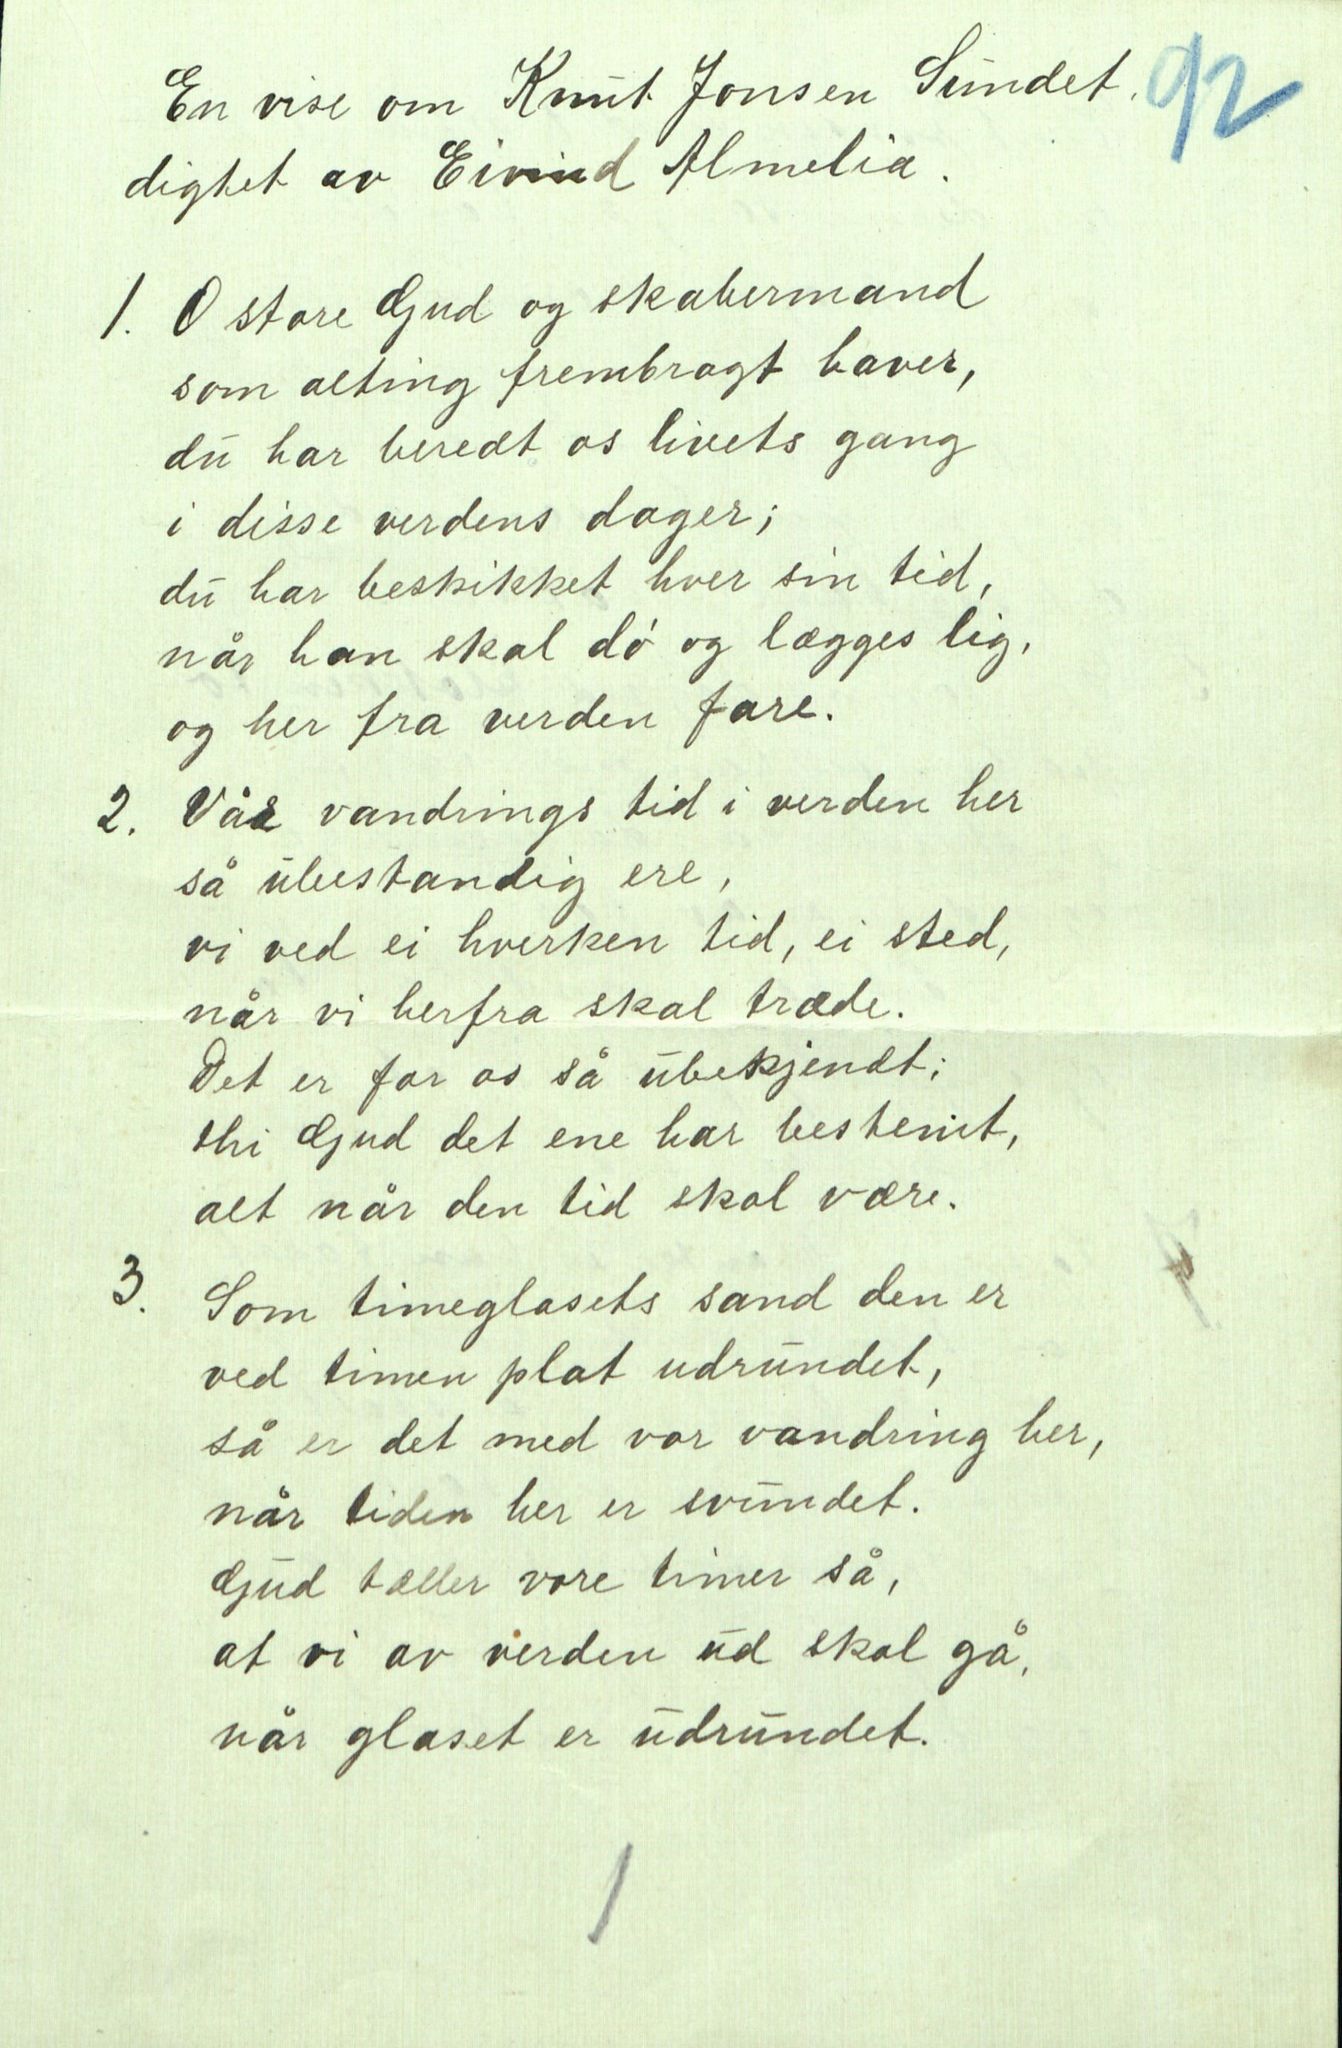 92
En vise om Knut Jonsen Sundet.
digtet av Eivind Almelia.
1. O store Gud og skabermand
som alting frembragt haver,
du har beredt os livets gang
i disse verdens dager;
du har beskikket hver sin tid,
når han skal dø og lægges lig,
og her fra verden fare.
2. Vår vandrings tid i verden her
så ubestandig ere,
vi ved ei hverken tid, ei sted,
når vi herfra skal træde.
Det er for os så ubekjendt;
thi Gud det ene har bestemt,
alt når den tid skal være.
3. Som timeglasets sand den er
ved timen plat udrundet,
så er det med vor vandring her,
når tiden her er svundet.
Gud tæller vore timer så,
at vi av verden ud skal gå,
når glaset er udrundet.
1